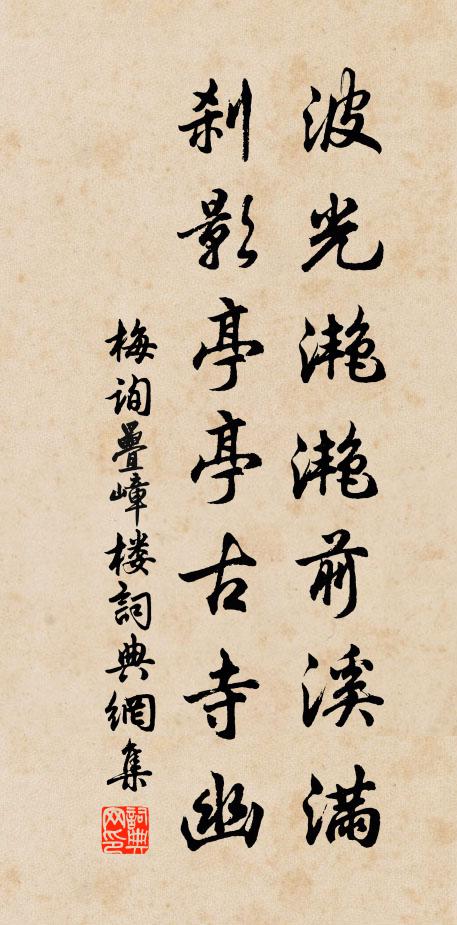 波光滟滟前溪满
刹影亭亭古寺幽
梅询疊嶂楼詞典網集
詞典網印